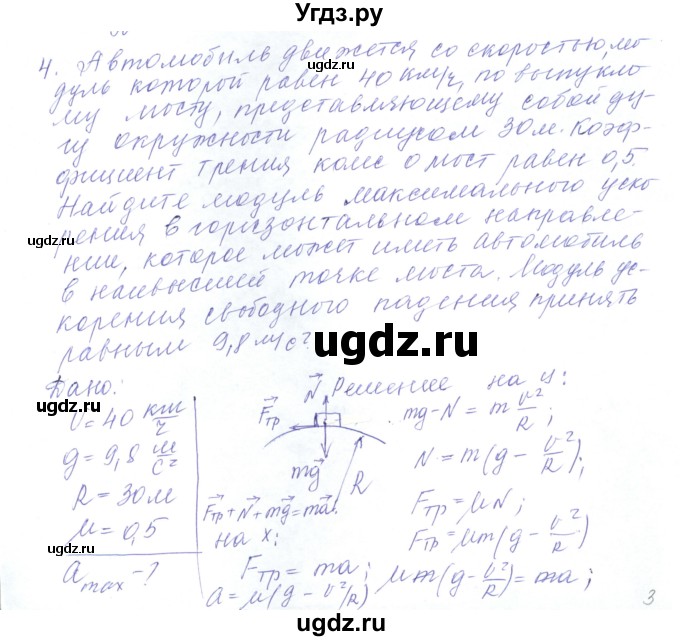 Угдз.ру
4. Автомобиль движется со скоростью, мо-
дуль которой равен 40 км/ч, по выпукло-
му мосту, представляющему собой ду-
гу окружности радиусом 30 м. Коэф-
фициент трения колес о мост равен 0,5.
Найдите модуль максимального уско
рения в горизонтальном направле-
нии, которое может иметь автомобиль
в наивысшей точке моста. Модуль ус-
корения свободного падения принять
равным 9,8 м/с²
ugdz.ru
ugdz.ru
ugdz.ru
Дано:
v = 40 км/ч
g = 9,8 м/с²
R = 30 м
μ = 0,5
a max - ?
Решение
N
Fтр
mg
R
Fтр + N + mg = ma.
на x:
Fтр = ma;
a = μ(g - v²/R)
на y:
mg - N = m v²/R;
N = m(g - v²/R);
Fтр = μN;
Fтр = μm(g - v²/R)
μm(g - v²/R) = ma;
ugdz.ru
ugdz.ru
ugdz.ru
3
ugdz.ru